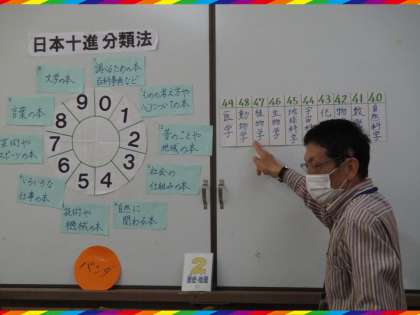 日本十進分類法
0
調べるための本
百科事典など
1
ものの考え方や
心についての本
2
昔のことや
地域の本
3
社会の
仕組みの本
4
自然に
関わる本
5
技術や
機械の本
6
いろいろな
仕事の本
7
芸術や
スポーツの本
8
言葉の本
9
文学の本
パンダ
2
歴史・地理
49 48 47 46 45 44 43 42 41 40
医学
動物学
植物学
生物学
地球科学
宇宙
化学
物理
数学
自然科学